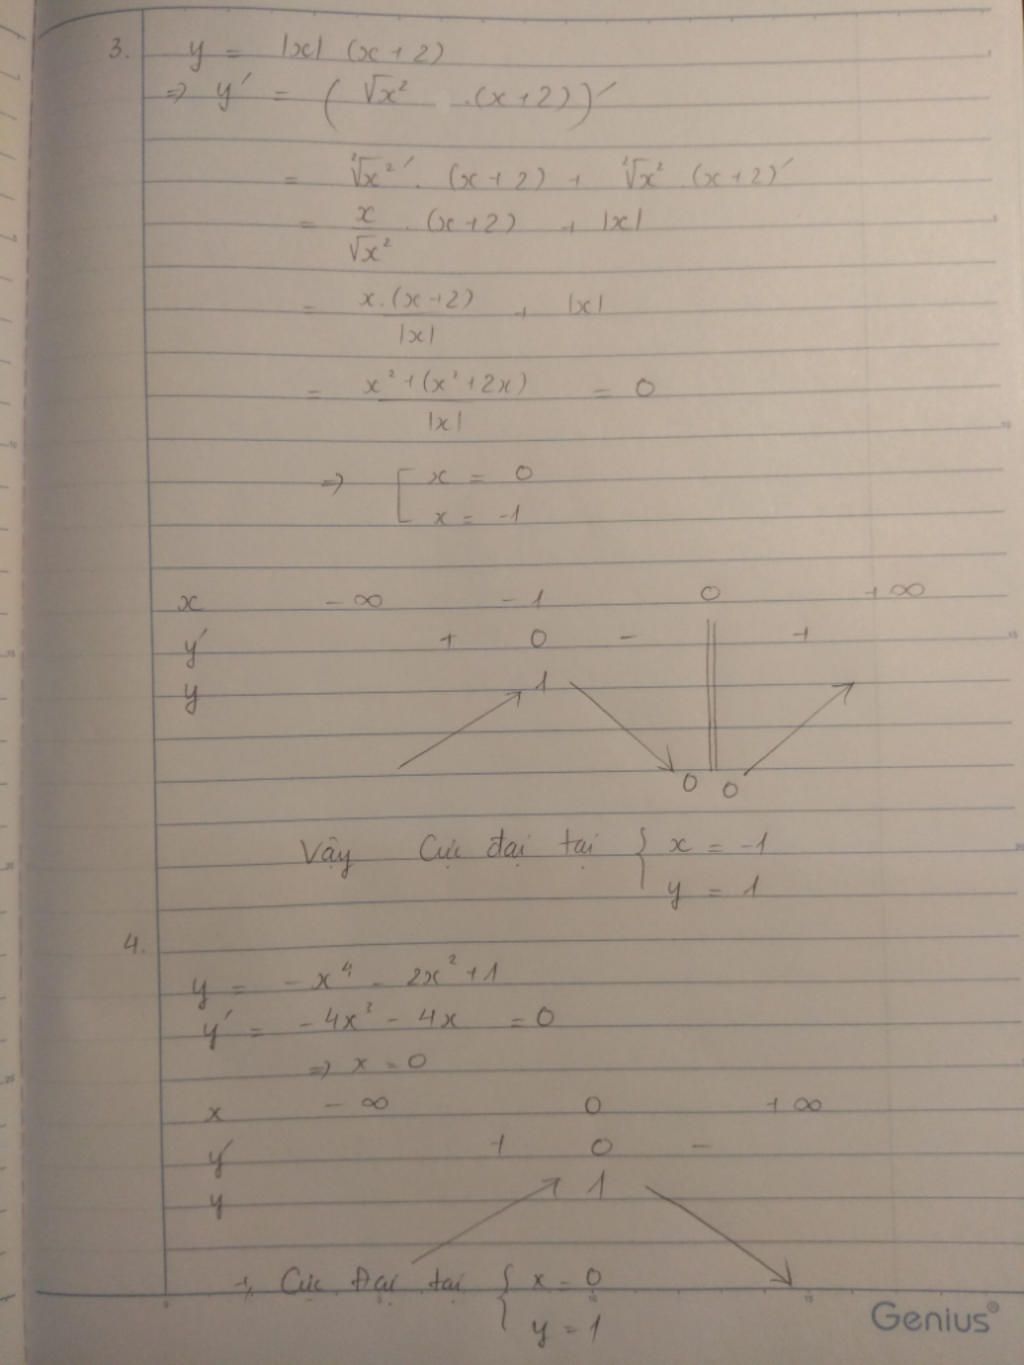 3. y = |x| (x+2)
⇒ y' = (√x² .(x+2))'
= ²√x²' . (x+2) + ²√x² . (x+2)'
= x/√x² . (x+2) + |x|
= x.(x+2)/|x| + |x|
= x²+(x²+2x)/|x| = 0
⇒ [ x = 0
x = -1
x -∞ -1 0 +∞
y' + 0 - || +
y 1
0 0
Vậy Cực đại tại { x = -1
y = 1
4.
y = -x⁴ - 2x² + 1
y' = -4x³ - 4x = 0
⇒ x = 0
x -∞ 0 +∞
y' + 0 -
y 1
+, Cực Đại tại { x = 0
y = 1
Genius®